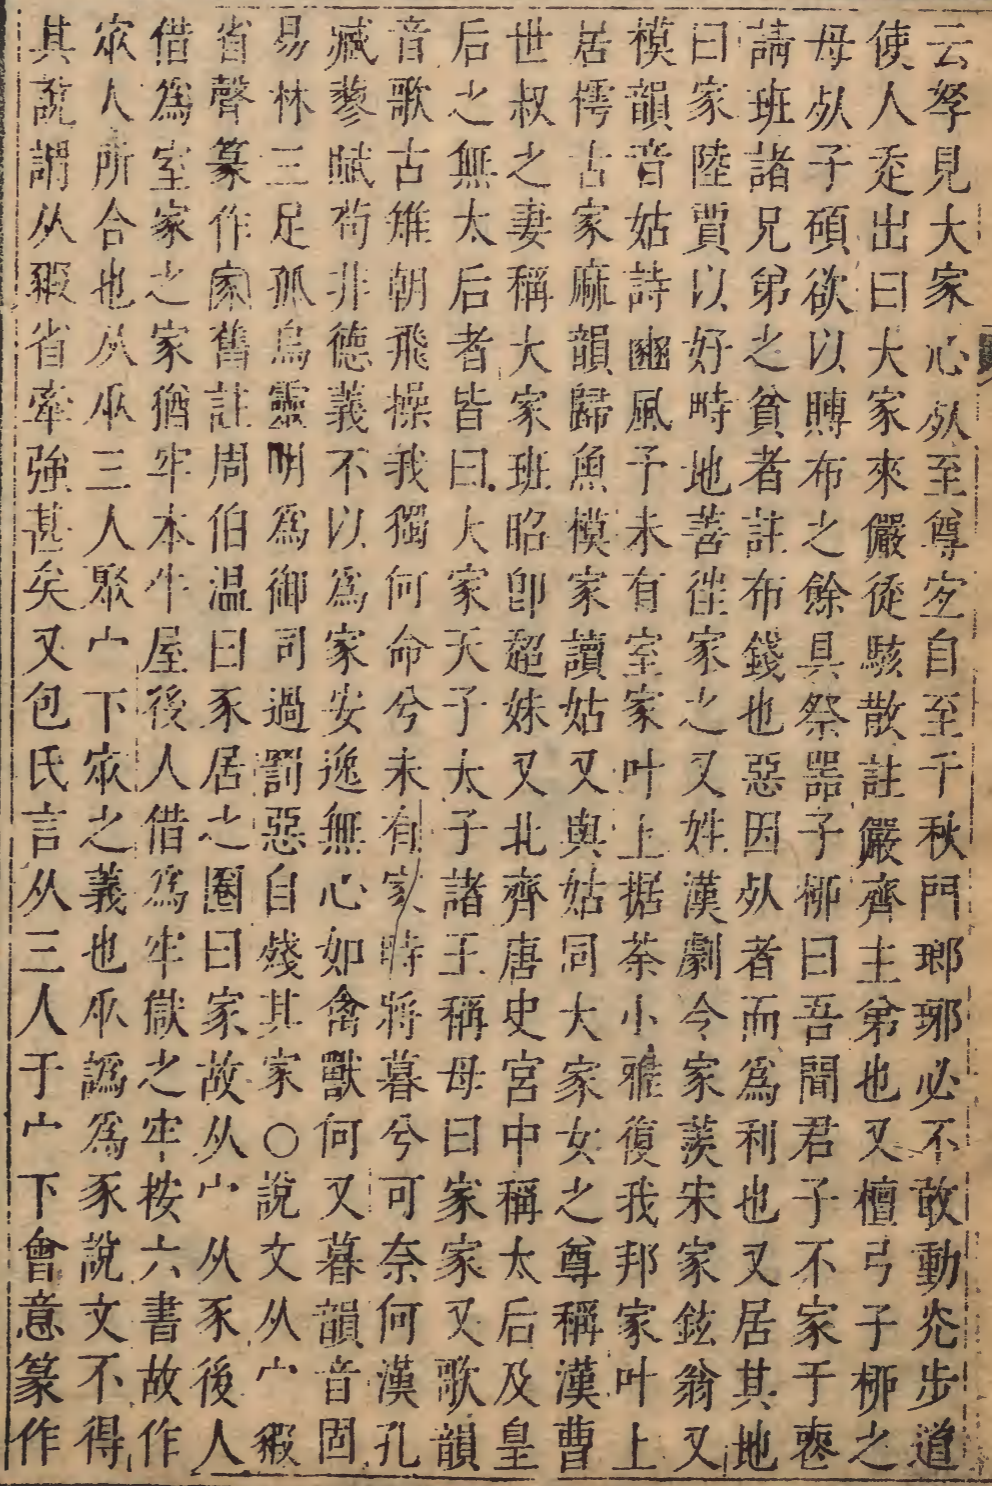 云孥見大家心死至尊㝎自至千秋門瑯琊必不敢動兊步道
使人走出曰大家來儼從駭散註儼齊主弟也又檀弓子桺之
母死子碩欲以賻布之餘具祭噐子桺曰吾聞君子不家于䘮
請班諸兄弟之貧者註布錢也惡因死者而爲利也又居其地
曰家陸賈以好畤地善徃家之又姓漢劇今家羨宋家鉉翁又
模韻音姑詩豳風予未有室家叶上据荼小雅復我邦家叶上
居樗古家麻韻歸魚模家讀姑又與姑同大家女之尊稱漢曹
世叔之妻稱大家班昭卽超妹又北齊唐史宮中稱太后及皇
后之無太后者皆曰大家天子太子諸王稱母曰家家又歌韻
音歌古雉朝飛操我獨何命兮未有家時將暮兮可奈何漢孔
臧蓼賦苟非德義不以爲家安逸無心如禽獸何又暮韻音固
易林三足孤烏靈明爲御司過罰惡自殘其家○說文从宀豭
省聲篆作家舊註周伯温曰豕居之圈曰家故从宀从豕後人
借爲室家之家猶牢本牛屋後人借爲牢獄之牢按六書故作
㐺人所合也从㐺三人聚宀下㐺之義也㐺譌爲豕說文不得
其說謂从豭省牽強甚矣又包氏言从三人于宀下會意篆作